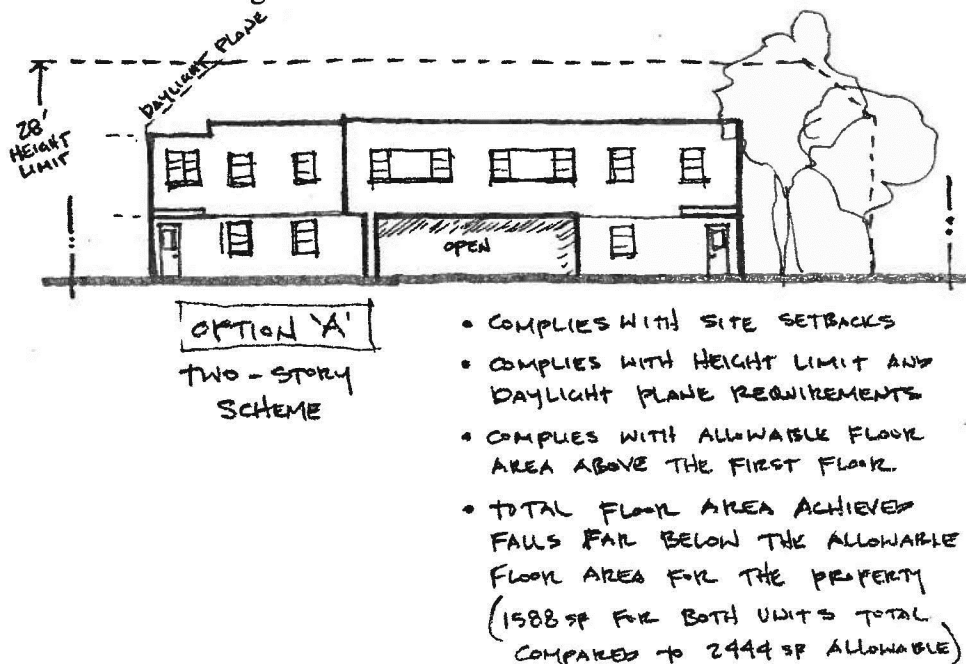 DAYLIGHT PLANE
28'
HEIGHT
LIMIT
OPEN
OPTION 'A'
TWO-STORY
SCHEME
• COMPLIES WITH SITE SETBACKS
• COMPLIES WITH HEIGHT LIMIT AND
DAYLIGHT PLANE REQUIREMENTS
• COMPLIES WITH ALLOWABLE FLOOR
AREA ABOVE THE FIRST FLOOR.
• TOTAL FLOOR AREA ACHIEVED
FALLS FAR BELOW THE ALLOWABLE
FLOOR AREA FOR THE PROPERTY
(1588 SF FOR BOTH UNITS TOTAL
COMPARED TO 2444 SF ALLOWABLE)